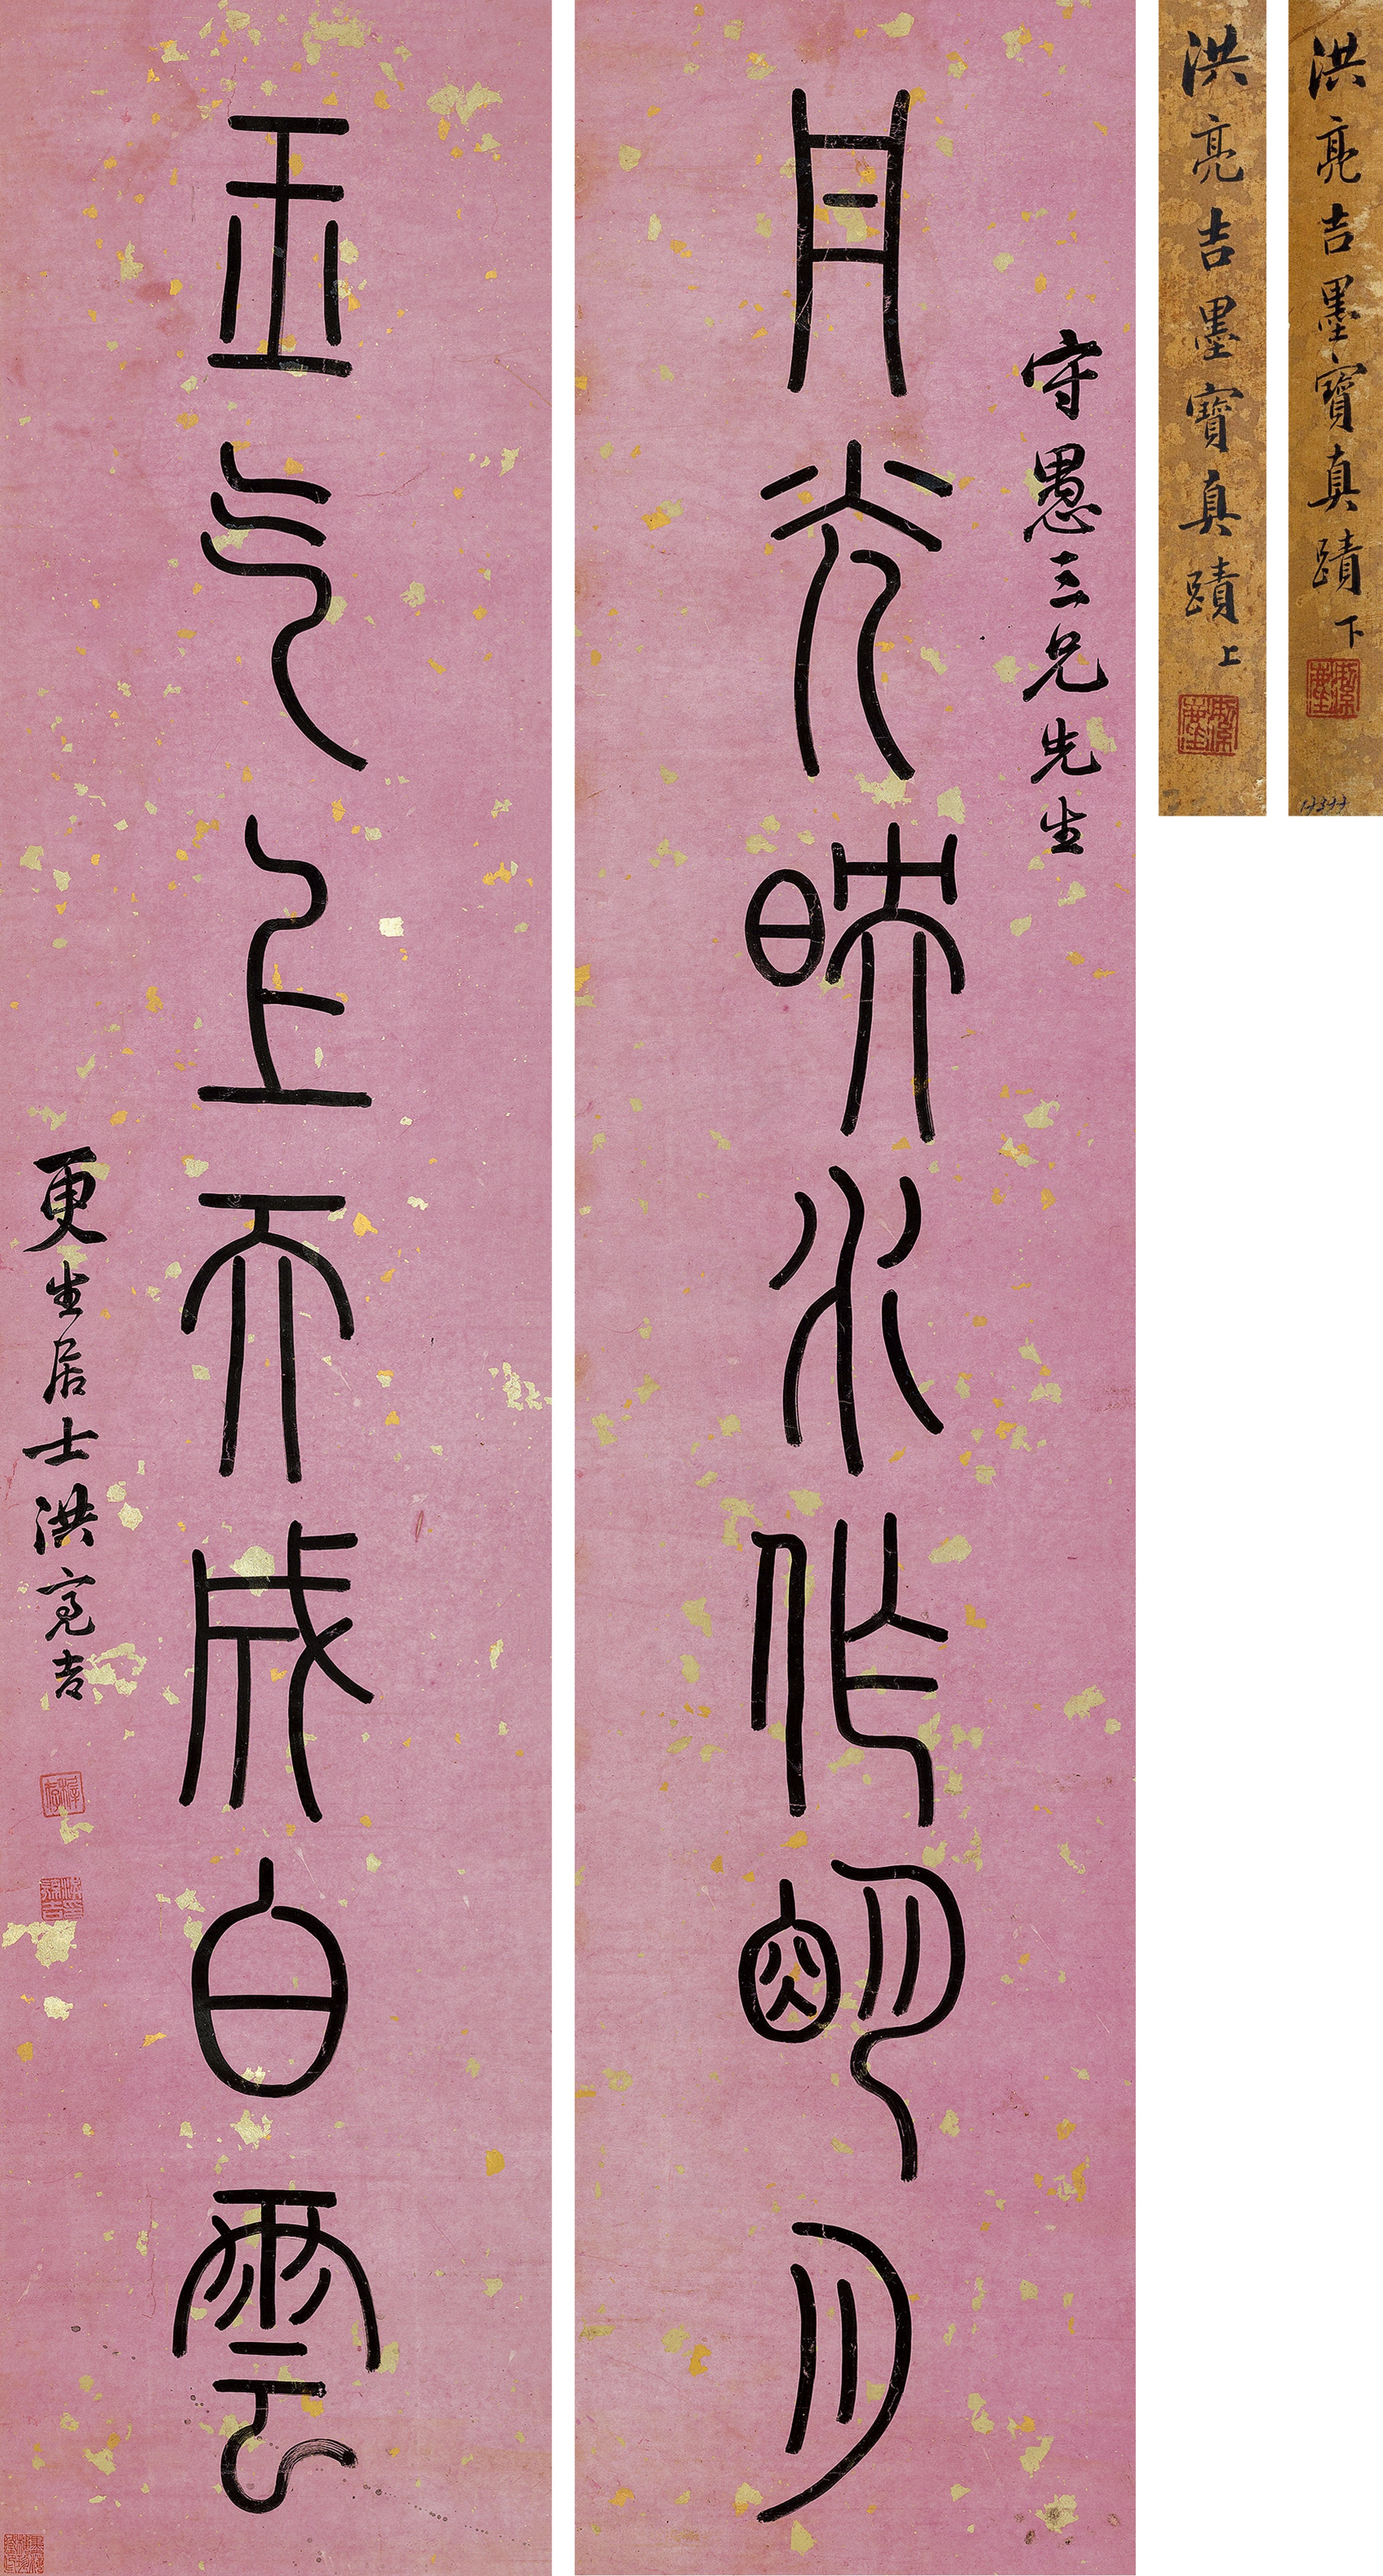 洪亮吉墨寶真蹟 下
洪亮吉墨寶真蹟 上
守愚三兄先生
丹光映水作朙月
玉气上天成白雲
更生居士洪亮吉